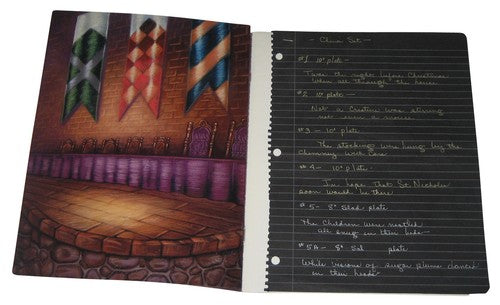 1 - China Set -
#1 10" plate -
Twas the night before Christmas
When all through the house
#2 10" plate -
Not a Creature was stirring
not even a mouse
#3 - 10" plate
The stockings were hung by the
Chimney with Care
#4 - 10" plate -
In hope That St Nicholas
soon would be there
#5 - 8" Salad plate
The Children were nestled
all snug in their beds -
#5A - 8" Sal plate
While visions of sugar plums danced
in their heads